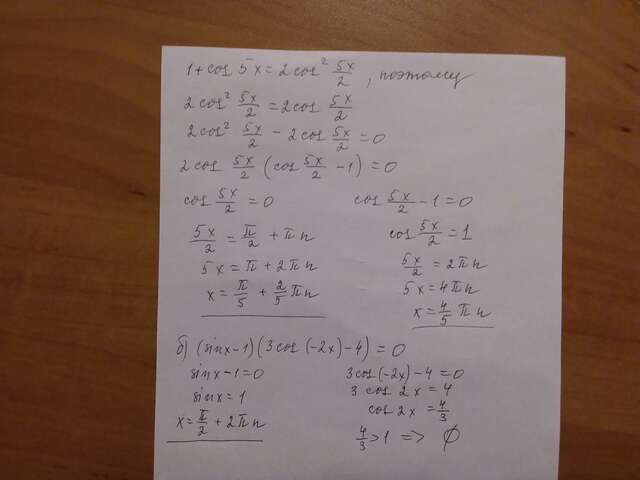 1+cos 5x = 2cos² 5x/2, поэтому
2cos² 5x/2 = 2cos 5x/2
2cos² 5x/2 - 2cos 5x/2 = 0
2cos 5x/2 (cos 5x/2 - 1) = 0
cos 5x/2 = 0
5x/2 = π/2 + πn
5x = π + 2πn
x = π/5 + 2/5 πn
cos 5x/2 - 1 = 0
cos 5x/2 = 1
5x/2 = 2πn
5x = 4πn
x = 4/5 πn
б) (sinx-1)(3cos(-2x)-4) = 0
sinx-1=0
sinx = 1
x = π/2 + 2πn
3cos(-2x)-4=0
3 cos 2x = 4
cos 2x = 4/3
4/3 > 1 => ∅